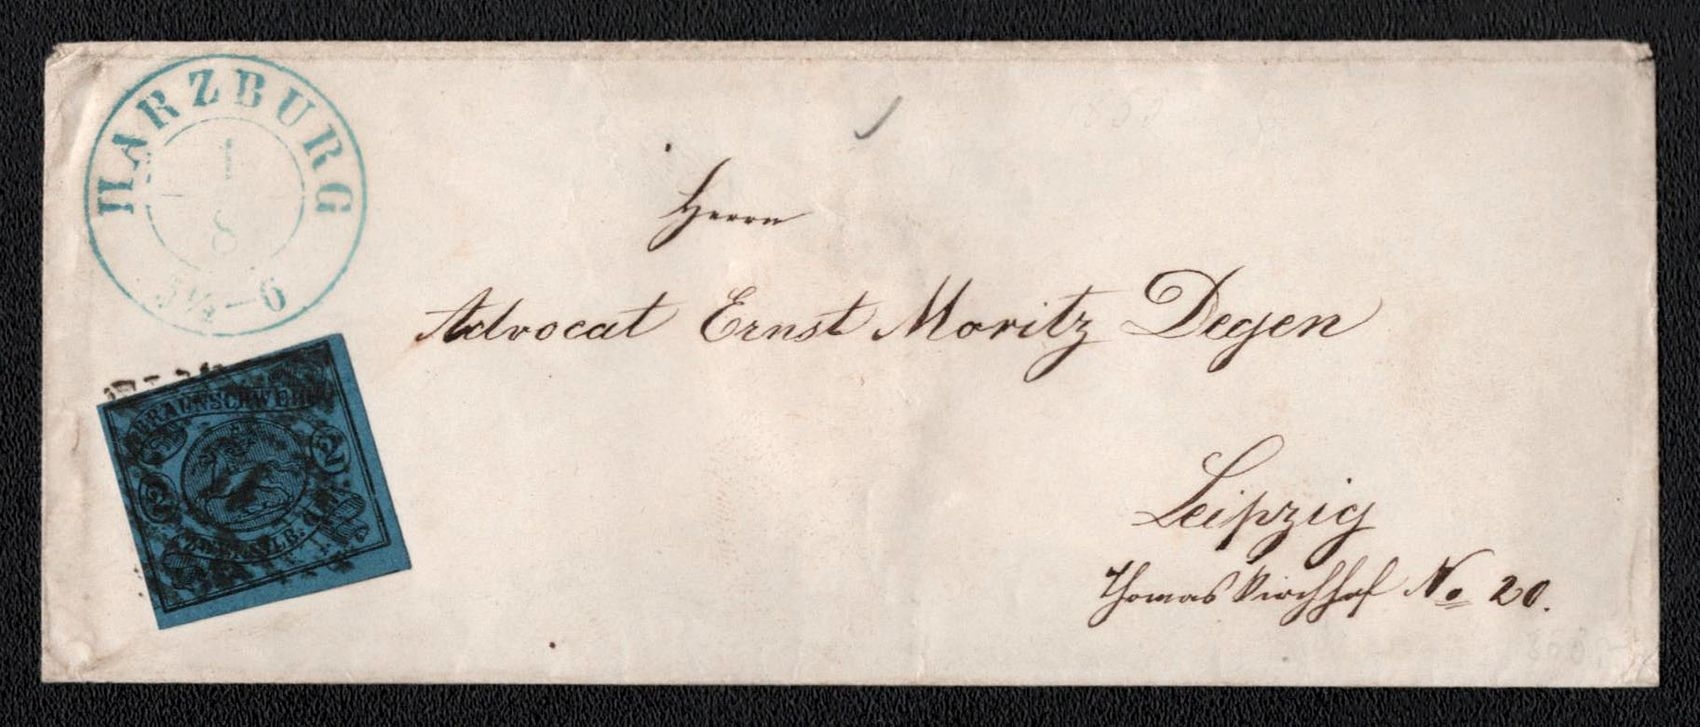 HARZBURG
1
8
5½—6
Herrn
Advocat Ernst Moritz Degen
Leipzig
Thomaskirchhof No 20.
BRAUNSCHWEIG
2
2
ZWEI SILB. GR.